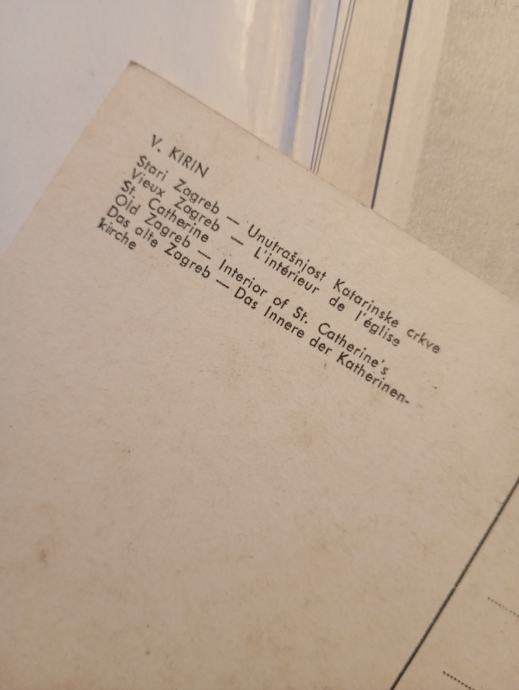 V. KIRIN
Stari Zagreb — Unutrašnjost Katarinske crkve
Vieux Zagreb — L'intérieur de l'église
St. Catherine
Old Zagreb — Interior of St. Catherine's
Das alte Zagreb — Das Innere der Katherinen-
kirche